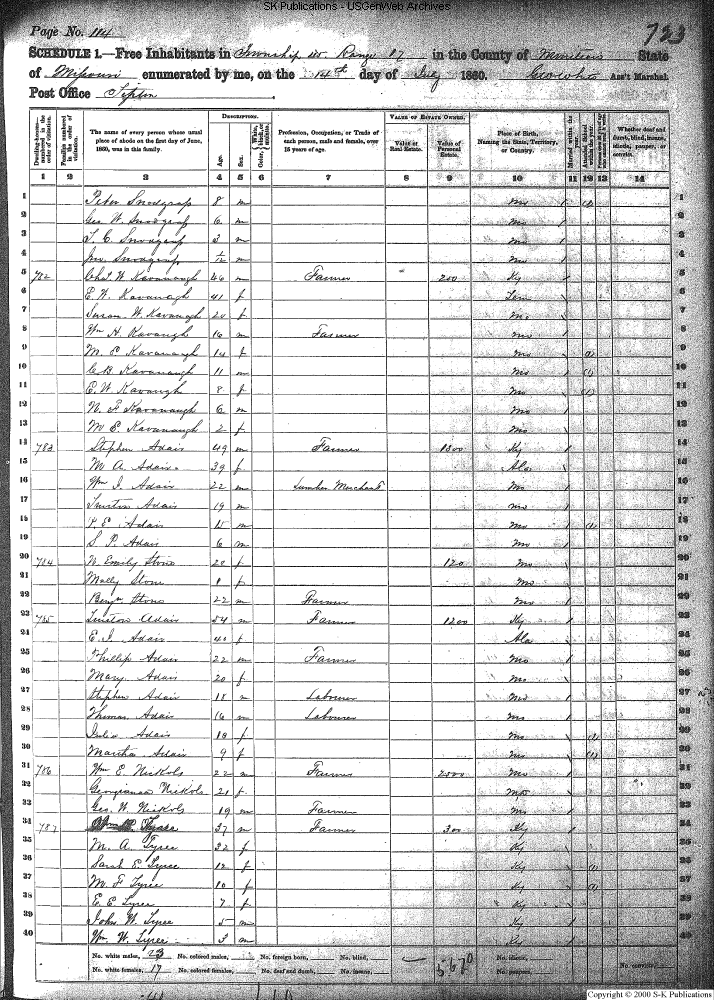 SK Publications - USGenWeb Archives
Page No. 114
723
SCHEDULE 1.—Free Inhabitants in Township 45 Range 17 in the County of Moniteau State
of Missouri enumerated by me, on the 14th day of July 1860. Ass't Marshal.
Post Office Tipton
Dwelling-houses numbered in the order of visitation.
Families numbered in the order of visitation.
The name of every person whose usual place of abode on the first day of June, 1860, was in this family.
DESCRIPTION.
Age.
Sex.
Color, White, black, or mulatto.
Profession, Occupation, or Trade of each person, male and female, over 15 years of age.
VALUE OF ESTATE OWNED.
Value of Real Estate.
Value of Personal Estate.
Place of Birth, Naming the State, Territory, or Country.
Married within the year.
Attended School within the year.
Whether deaf and dumb, blind, insane, idiotic, pauper, or convict.
1 2 3 4 5 6 7 8 9 10 11 12 13 14
1 Peter Snodgrass 8 m Mo 1
2 Geo. W. Snodgrass 6 m Mo 2
3 T. C. Snodgrass 3 m Mo 3
4 Snodgrass m Mo 4
5 782 Chas. W. Kavanaugh 46 m Farmer 200 Ky 5
6 E. W. Kavanagh 41 f Ten 6
7 Susan W. Kavaugh 20 f Mo 7
8 Wm H. Kavaugh 16 m Farmer Mo 8
9 M. E. Kavanaugh 14 f Mo (1) 9
10 C. B. Kavanaugh 11 m Mo (1) 10
11 E. W. Kavaugh 8 f Mo (1) 11
12 N. F. Kavanaugh 6 m Mo 12
13 M. E. Kavanaugh 2 f Mo 13
14 783 Stephen Adair 49 m Farmer 1300 Ky 14
15 M A. Adair 39 f Ala 15
16 Wm J. Adair 22 m Lumber Merchant Mo 16
17 Adair 19 m Mo 17
18 Adair 15 m Mo (1) 18
19 S. P. Adair 6 m Mo 19
20 784 N. Emily Stone 20 f 120 Mo 20
21 Molly Stone f Mo 21
22 Benjn Stone 22 m Farmer Mo 22
23 785 Adair 54 m Farmer 1200 Ky 23
24 E. J. Adair 40 f Ala 24
25 Phillip Adair 22 m Farmer Mo 25
26 Mary Adair 20 f Mo 26
27 Stephen Adair 18 m Labourer Mo 27
28 Thomas Adair 16 m Labourer Mo 28
29 Julia Adair 10 f Mo (1) 29
30 Martha Adair 9 f Mo (1) 30
31 786 Wm E. Nickols 22 m Farmer 2500 Mo 31
32 Georgianna Nickols 21 f Mo 32
33 Geo. W. Nickols 19 m Farmer Mo 33
34 787 37 m Farmer 300 Ky 34
35 M. A. Tyree 32 f Ky 35
36 Sarah E. Tyree 12 f Ky (1) 36
37 M. F. Tyree 10 f Ky (1) 37
38 E. E. Tyree 7 f Ky 38
39 John W. Tyree 5 m Ky 39
40 Wm. W. Tyree 3 m Ky 40
No. white males, 23 No. colored males, No. foreign born, No. blind, 5670 No. idiotic,
No. white females, 17 No. colored females, No. deaf and dumb, No. insane, No. paupers, No. convicts,
Copyright © 2000 S-K Publications